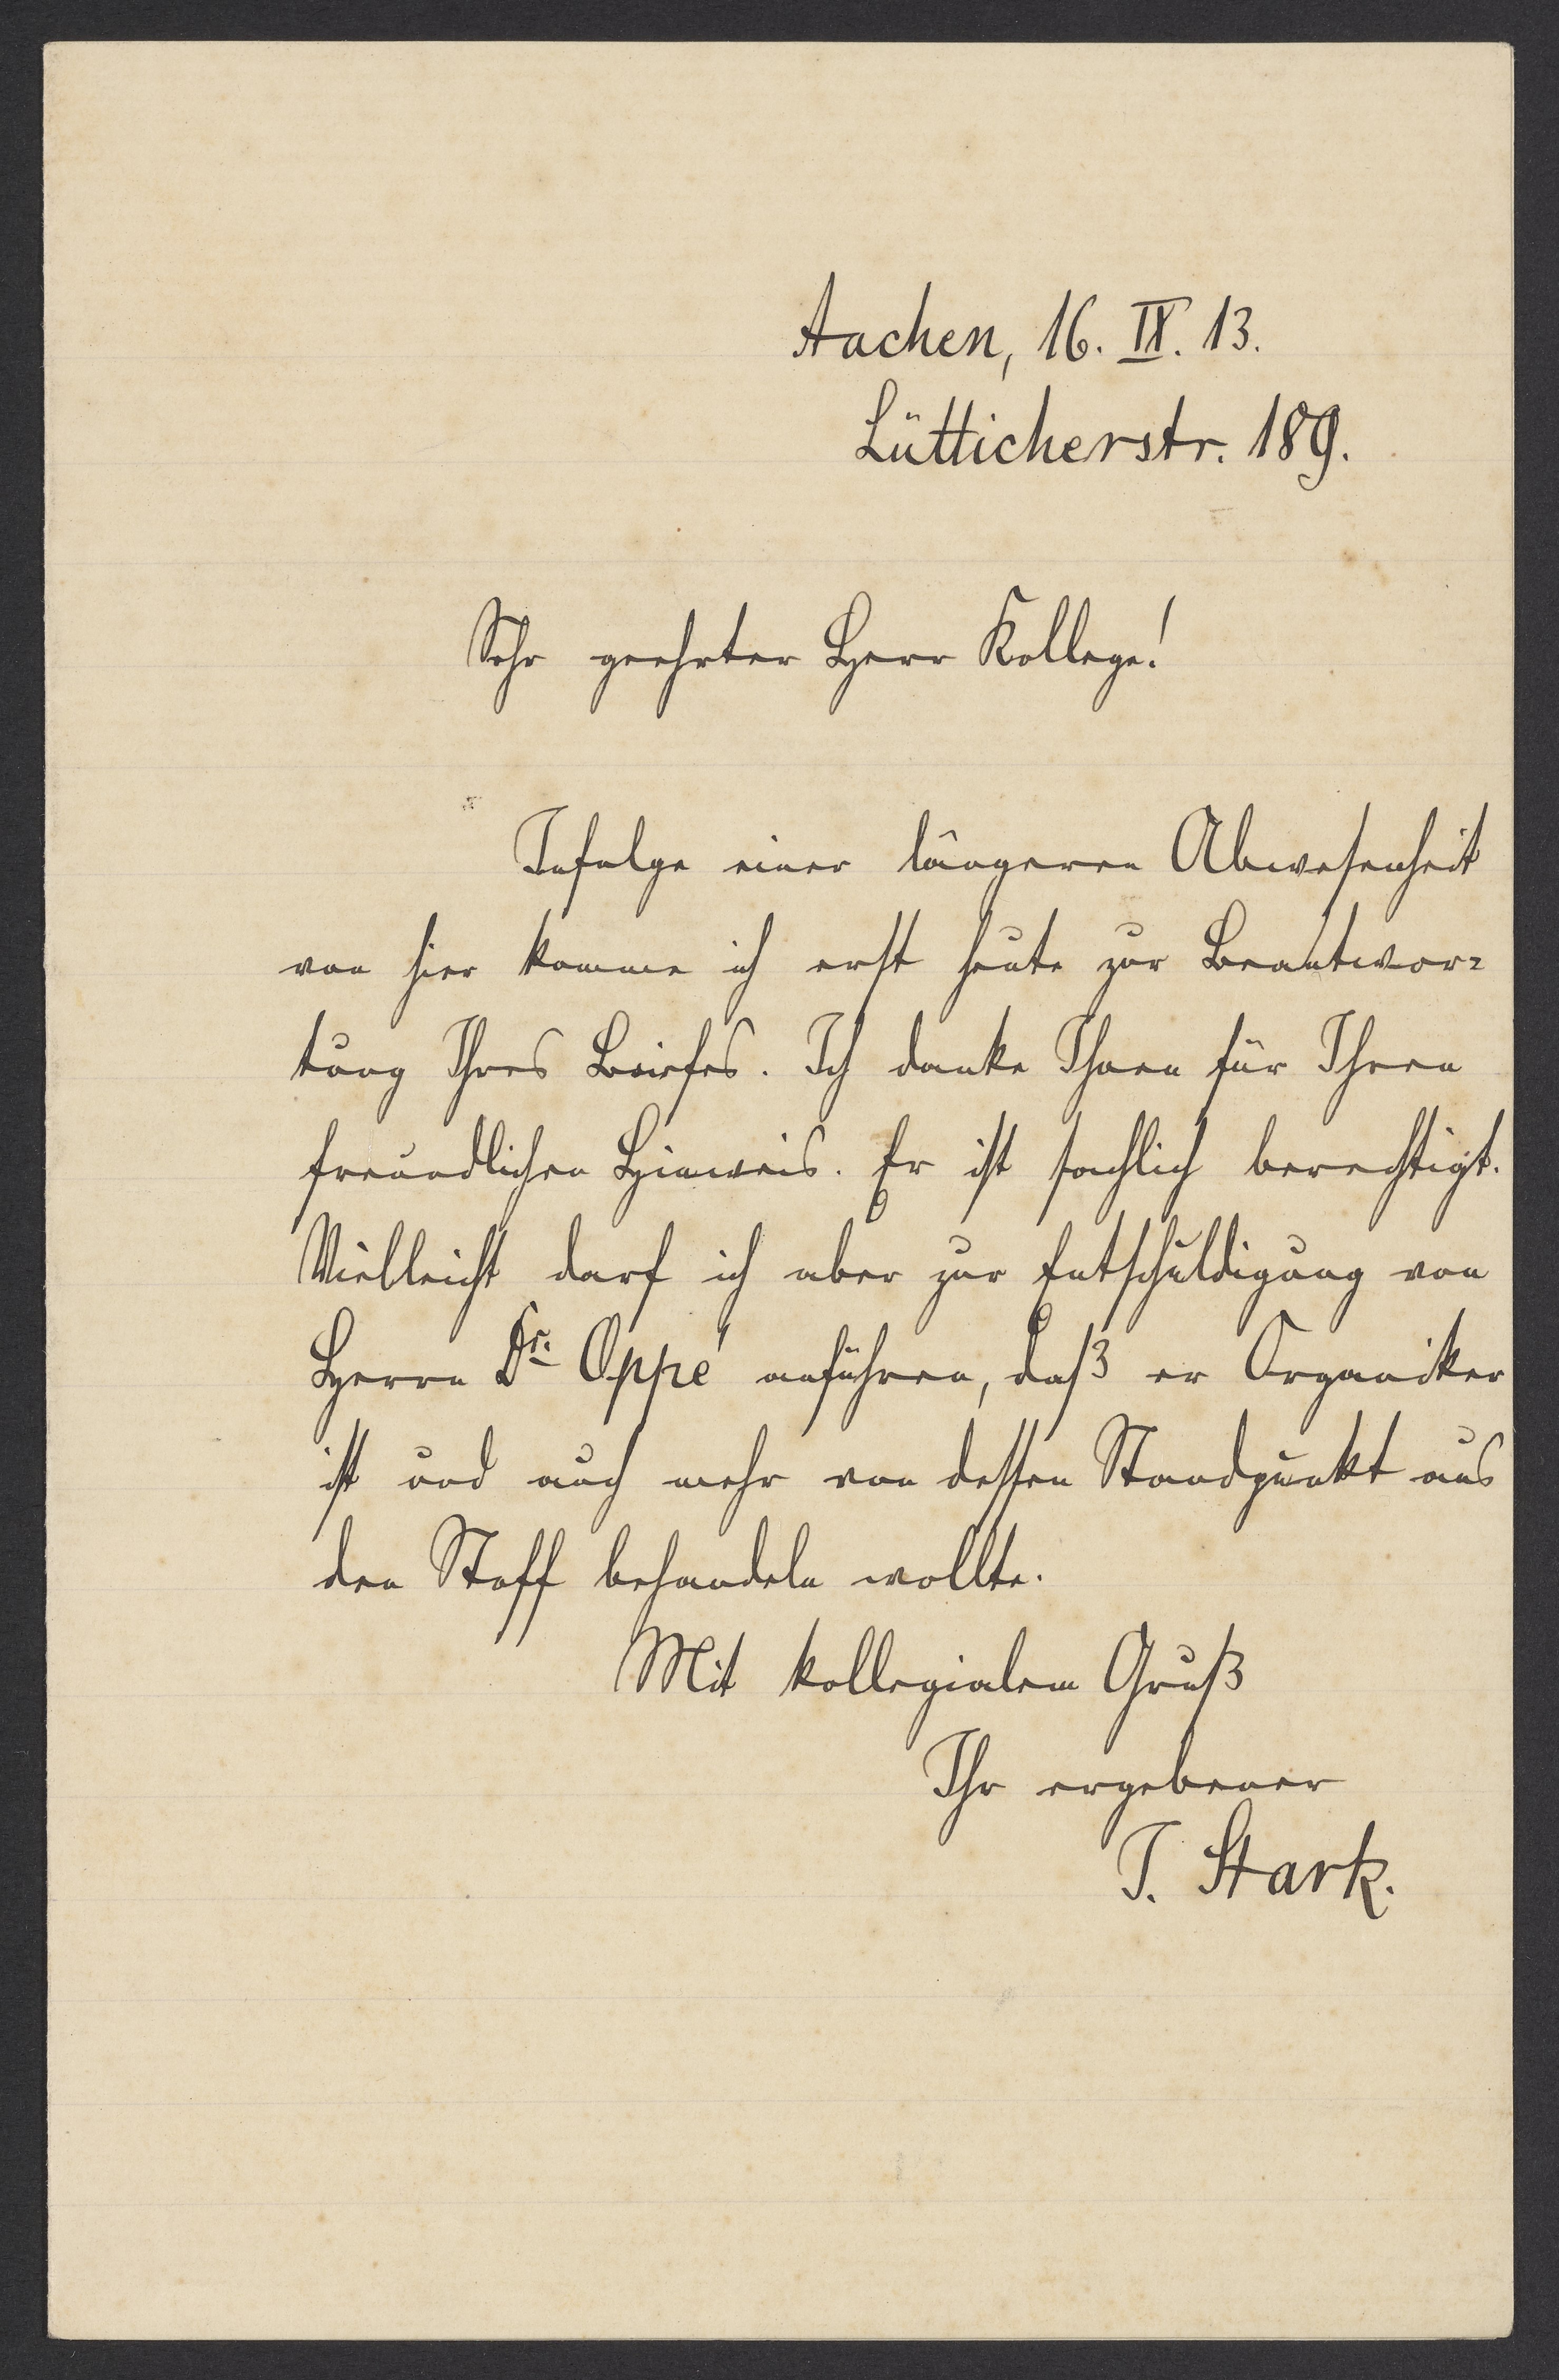 Aachen, 16. IX. 13.
Lütticherstr. 189.
Sehr geehrter Herr Kollege!
Infolge einer längeren Abwesenheit
von hier komme ich erst heute zur Beantwor-
tung Ihres Briefes. Ich danke Ihnen für Ihren
freundlichen Hinweis. Er ist sachlich berechtigt.
Vielleicht darf ich aber zur Entschuldigung von
Herrn Dr. Oppé anführen, daß er Organiker
ist und auch mehr von dessen Standpunkt aus
den Stoff behandeln wollte.
Mit kollegialem Gruß
Ihr ergebener
J. Stark.